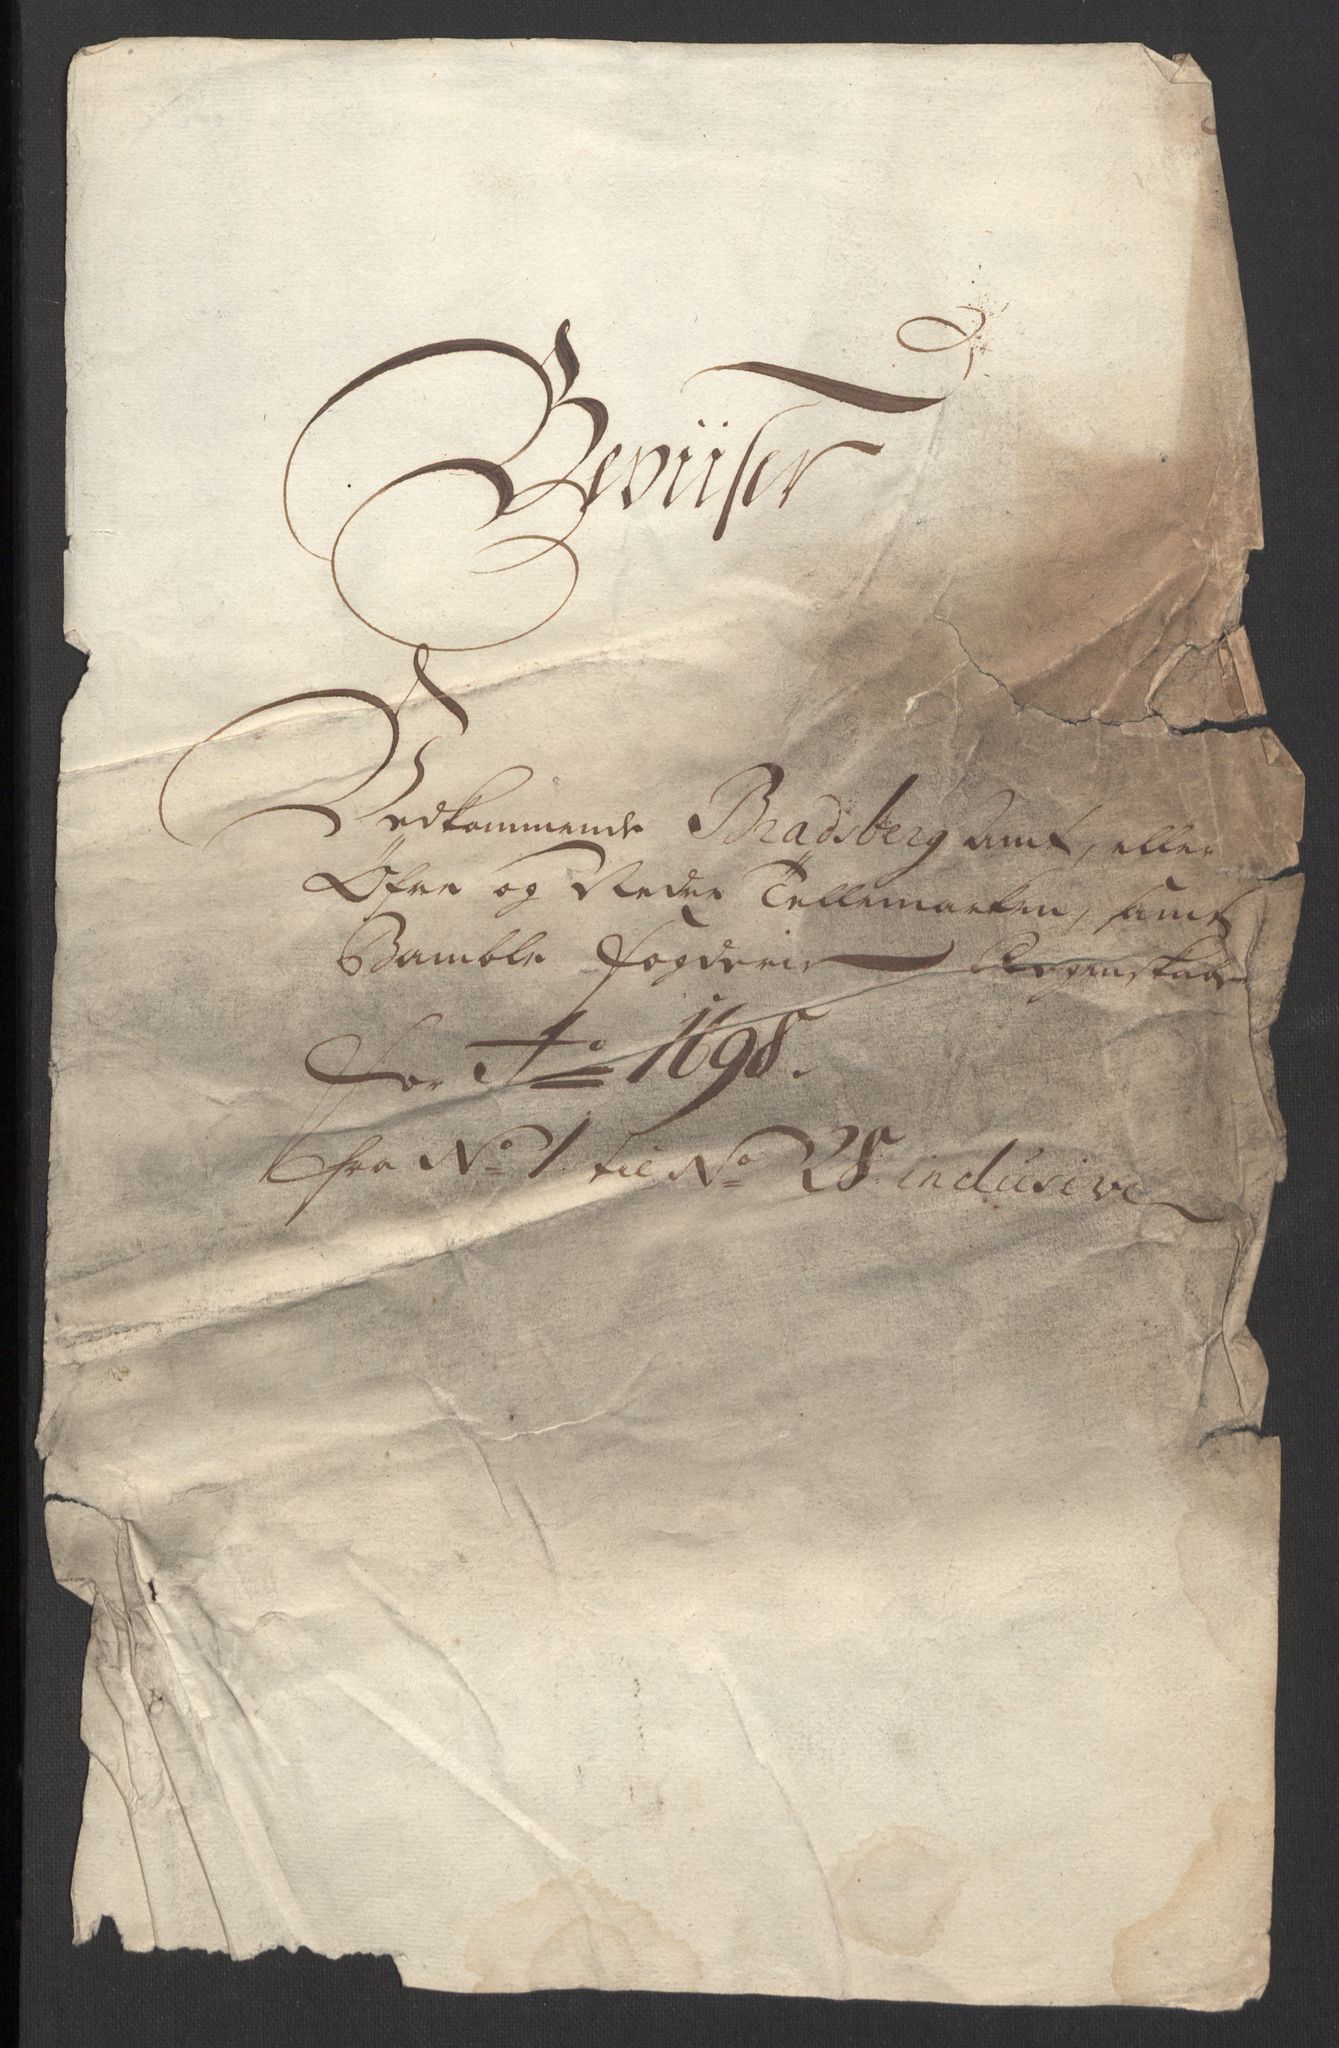 Beviiser
Vedkommende Bradsberg Amt, eller
Øfre og Nedre Tellemarken, samt
Bamble Fogderie Regenskaber
for Ao 1698.
fra No 1. til No 28. inclusive